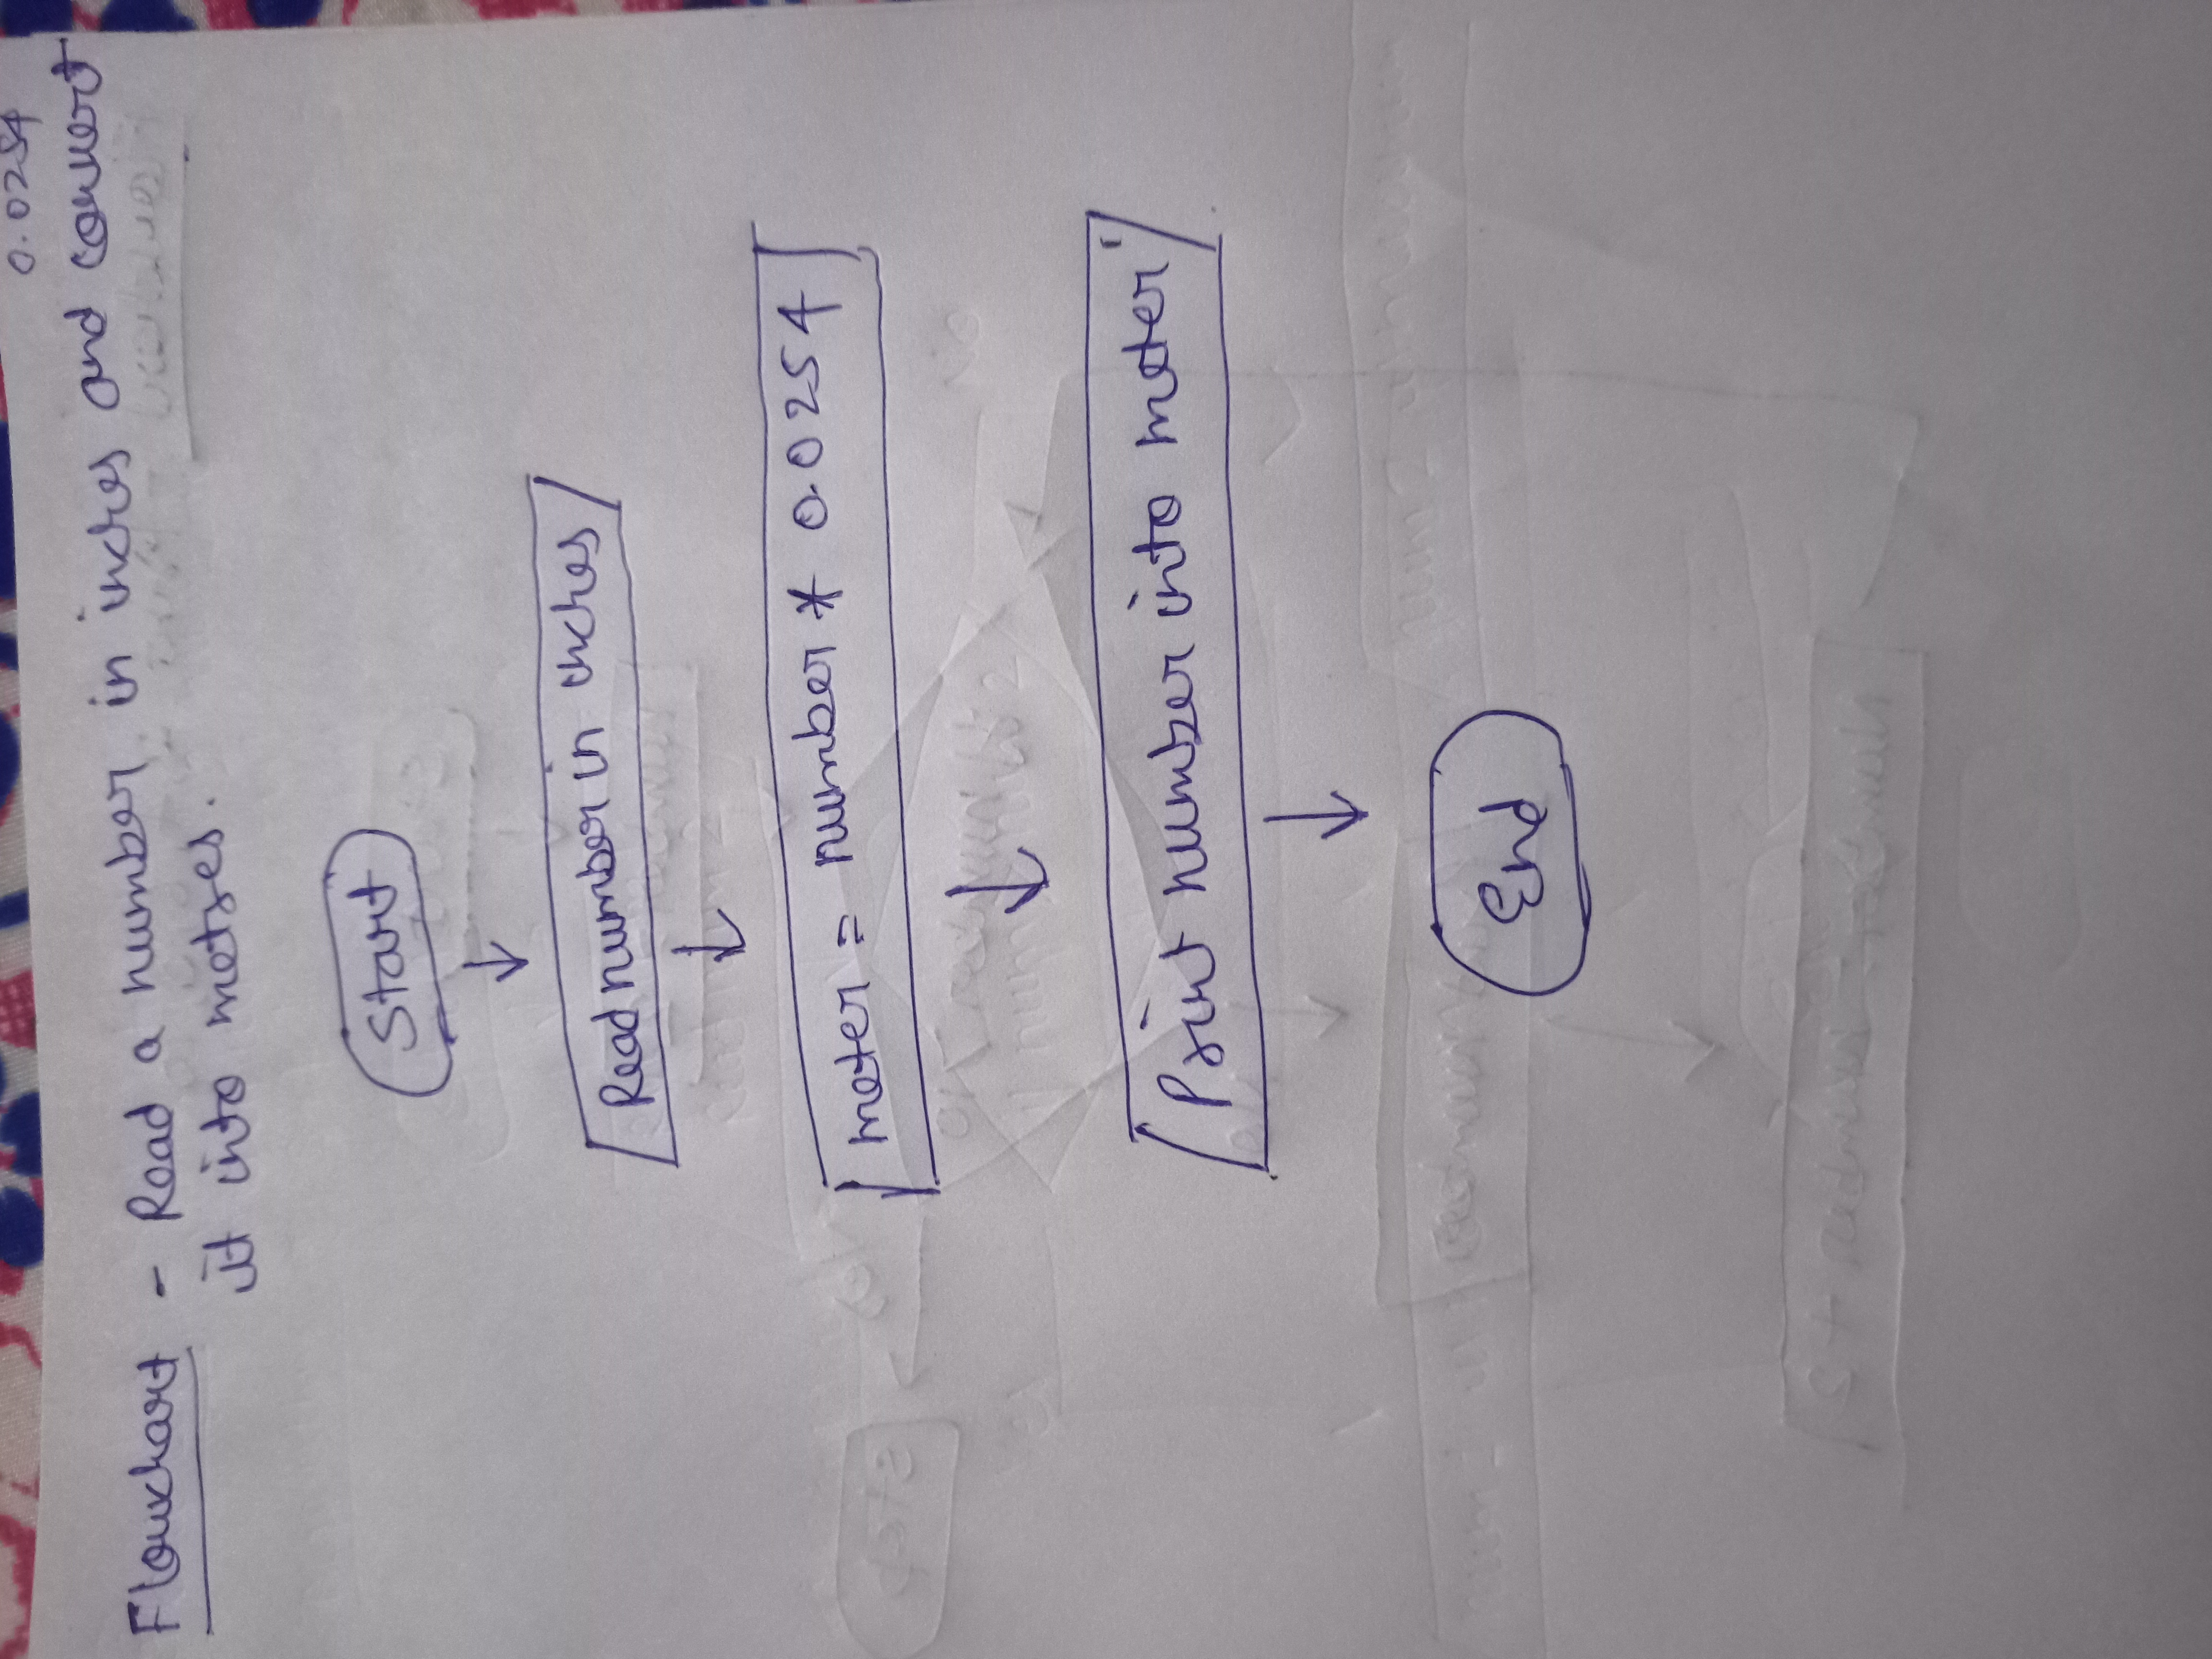 0.0254
Flowchart - Read a number in inches and convert
it into metres.
Start
Read number in inches
meter = number * 0.0254
Print number into meter
End